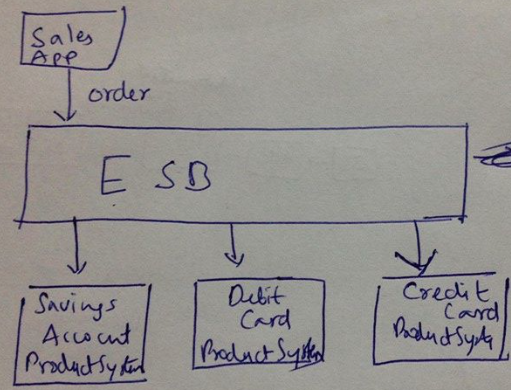 Sales
App
order
ESB
Savings
Account
Product System
Debit
Card
Product System
Credit
Card
Product Syste